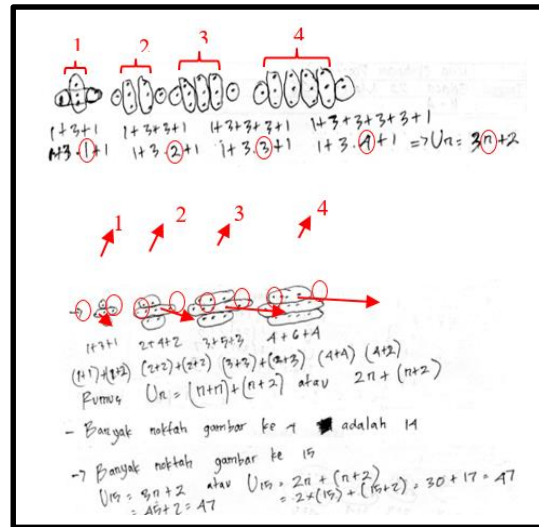 1 2 3 4
1+3+1 1+3+3+1 1+3+3+3+1 1+3+3+3+3+1
1+3.1+1 1+3.2+1 1+3.3+1 1+3.4+1 => Un = 3n+2
1 2 3 4
1+3+1 2+4+2 3+5+3 4+6+4
(1+1)+(1+2) (2+2)+(2+2) (3+3)+(3+3) (4+4) (4+2)
Rumus Un = (n+n)+(n+2) atau 2n+(n+2)
- Banyak noktah gambar ke 4 adalah 14
-> Banyak noktah gambar ke 15
U15 = 3n+2 atau U15 = 2n+(n+2)
= 45+2 = 47 = 2×(15)+(15+2) = 30+17 = 47